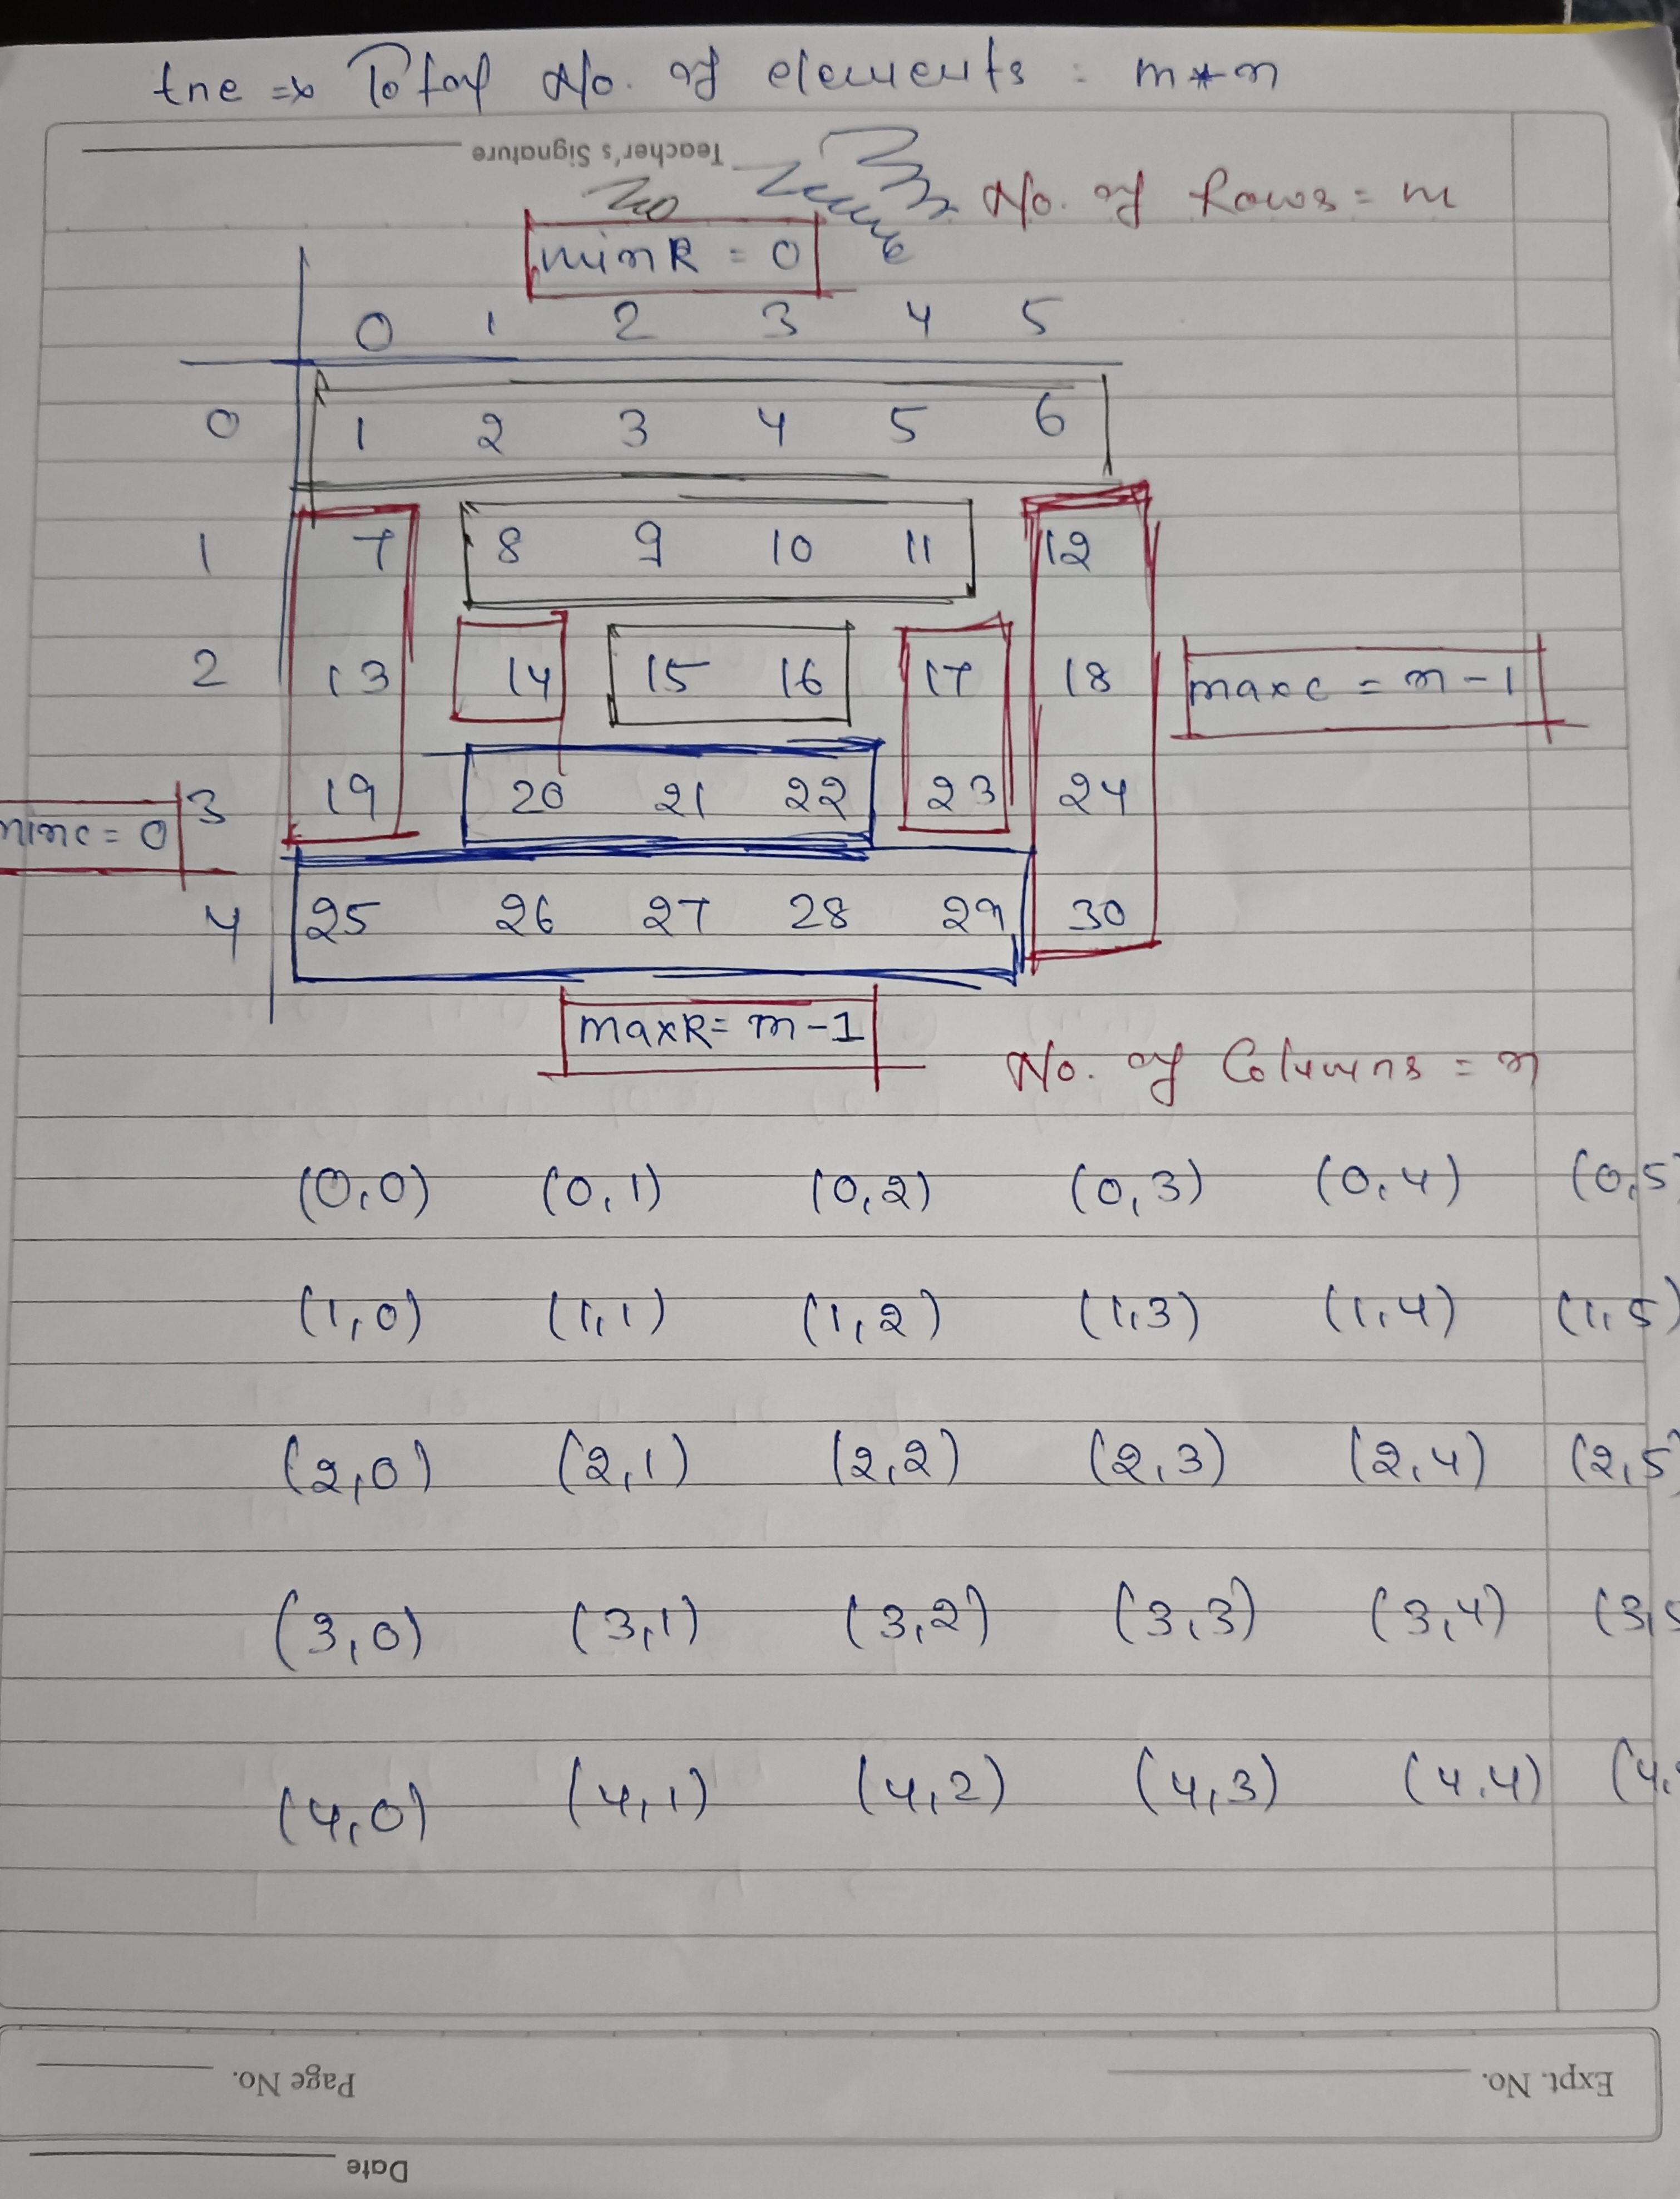 tne => Total No. of elements : m*n
Teacher's Signature
No. of Rows = m
minR = 0
0 1 2 3 4 5
0 1 2 3 4 5 6
1 7 8 9 10 11 12
2 13 14 15 16 17 18 maxc = n-1
minc = 0 3 19 20 21 22 23 24
4 25 26 27 28 29 30
maxR = m-1
No. of Columns = n
(0,0) (0,1) (0,2) (0,3) (0,4) (0,5)
(1,0) (1,1) (1,2) (1,3) (1,4) (1,5)
(2,0) (2,1) (2,2) (2,3) (2,4) (2,5)
(3,0) (3,1) (3,2) (3,3) (3,4) (3,5
(4,0) (4,1) (4,2) (4,3) (4,4) (4,
Page No. Expt. No.
Date